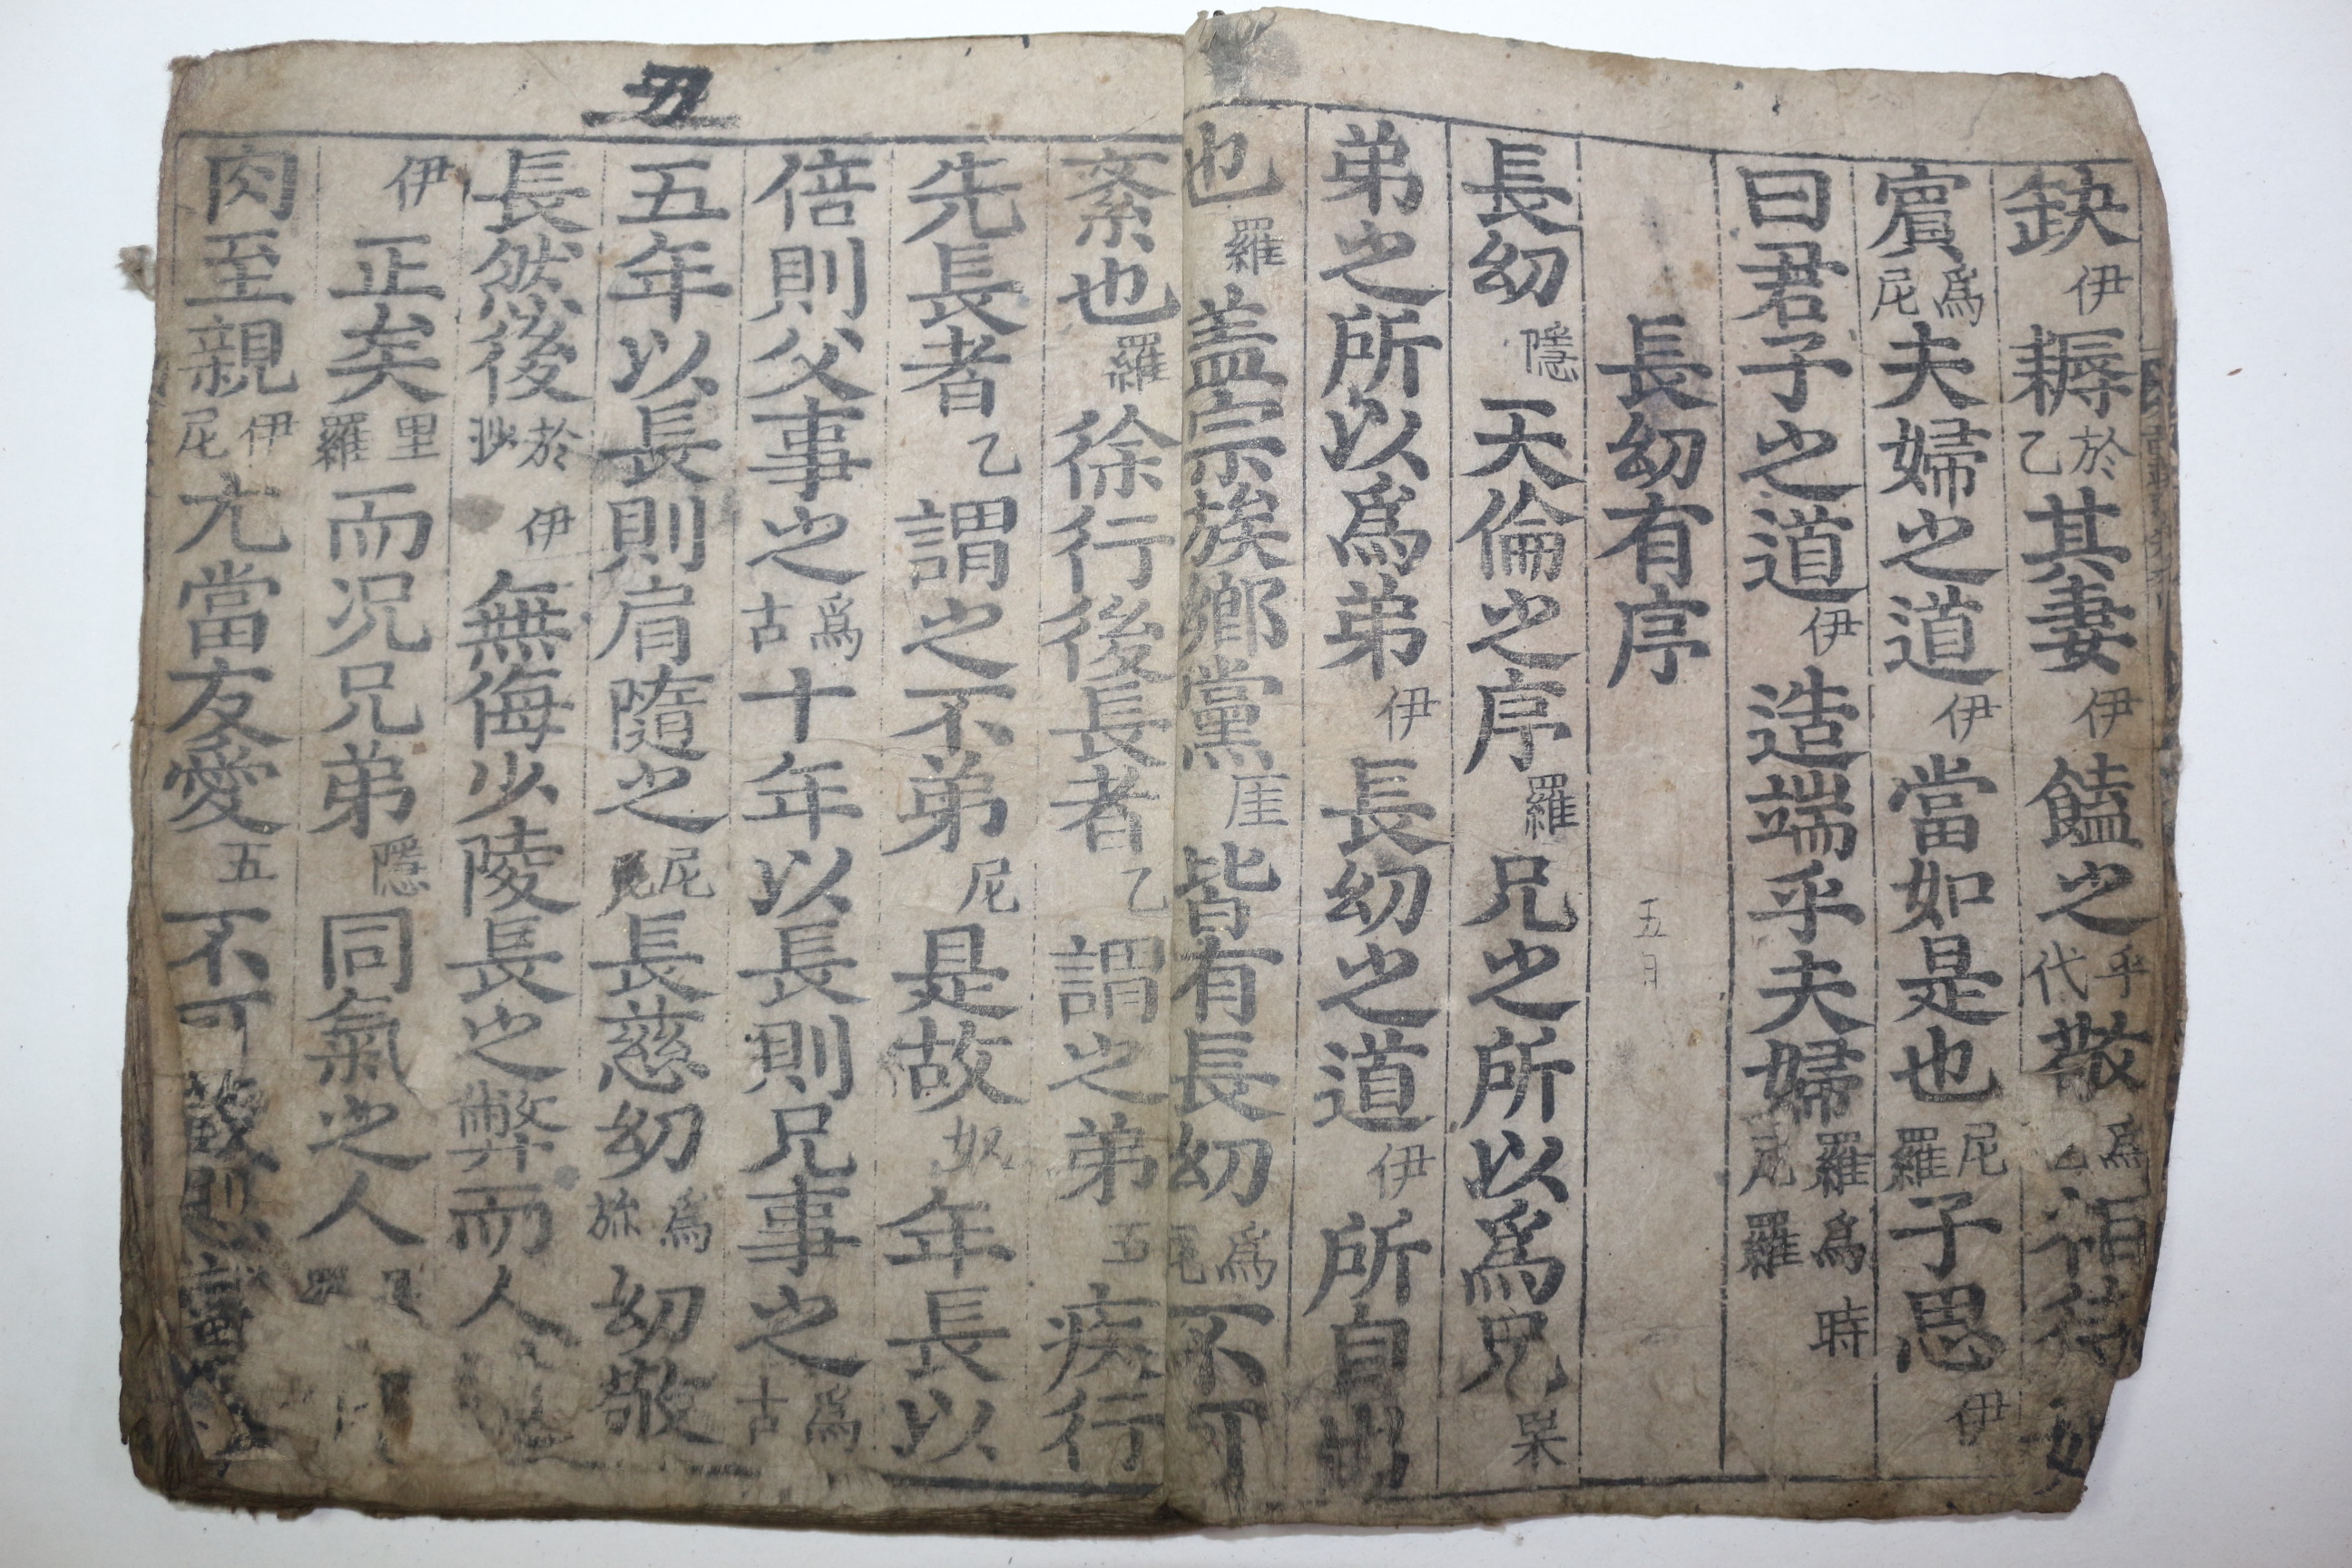 缺伊耨於乙其妻伊饁之乎代敬爲乙相待如
賓爲尼夫婦之道伊當如是也尼羅子思伊
曰君子之道伊造端乎夫婦羅爲時尼羅
長幼有序
五月
長幼隱天倫之序羅兄之所以爲兄果
弟之所以爲弟伊長幼之道伊所自出
也羅盖宗族鄕黨厓皆有長幼爲尼不可
丑
紊也羅徐行後長者乙謂之弟五疾行
先長者乙謂之不弟尼是故奴年長以
倍則父事之爲古十年以長則兄事之爲古
五年以長則肩隨之尼長慈幼爲旀幼敬
長然後於沙伊無侮少陵長之弊而人
伊正矣里羅而况兄弟隱同氣之人
肉至親伊尼尤當友愛五不可藏怨蓄